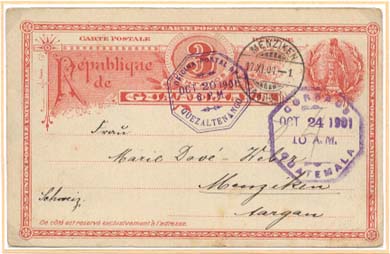 CARTE POSTALE CARTE POSTALE
République
de
3
GUATEMALA
MENZIKEN
17.XI.01-1
OFICINA POSTAL DE
OCT 20 1901
6 P.M.
QUEZALTENANGO
CORREOS
OCT 24 1901
10 A.M.
GUATEMALA
Frau
Marie Dové-Weber
Menziken
Schweiz. Aargau
Ce côté est réservé exclusivement à l'adresse.